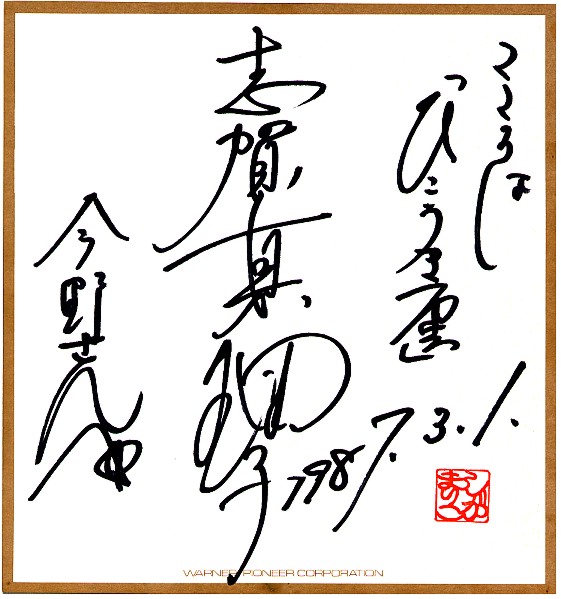 「ひこうき雲」
志賀真理子
1987.3.1.
今野さん江
しが
まりこ
WARNER-PIONEER CORPORATION